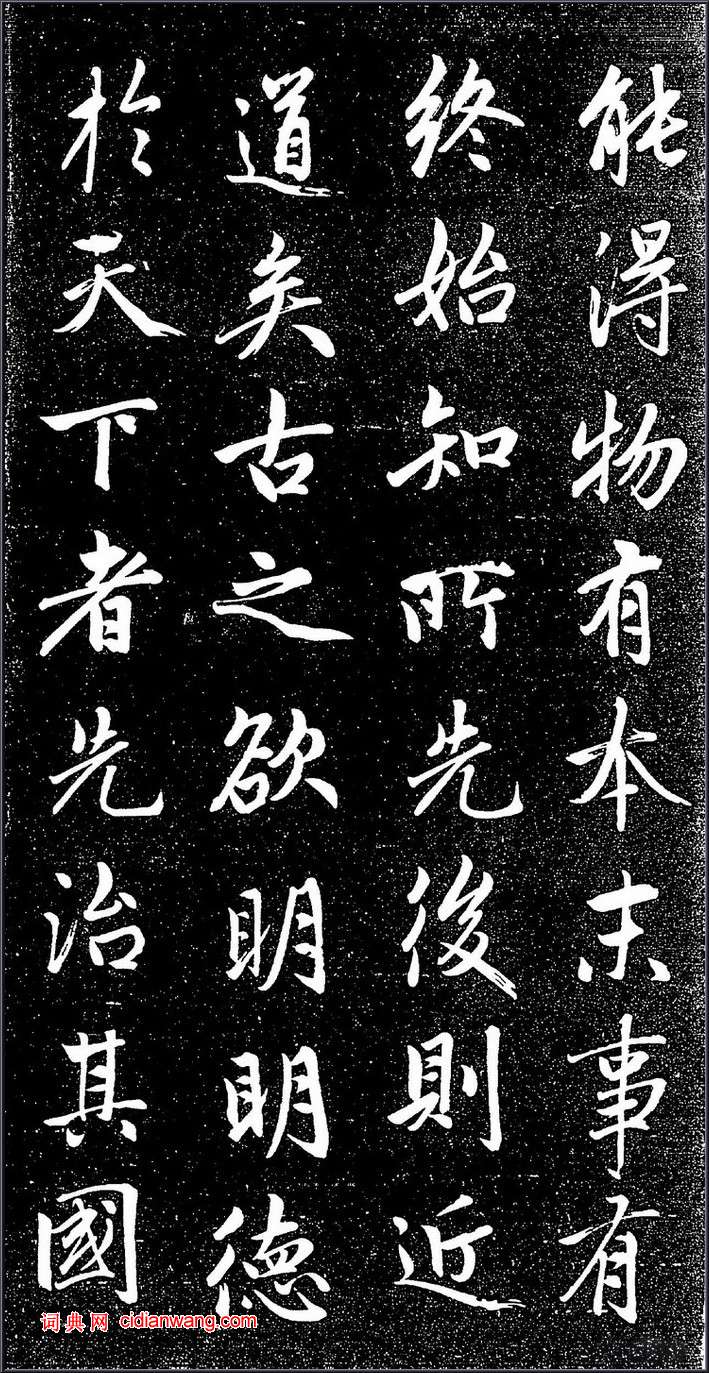 能得物有本末事有
終始知所先後則近
道矣古之欲明明德
於天下者先治其國
词典网 cidianwang.com